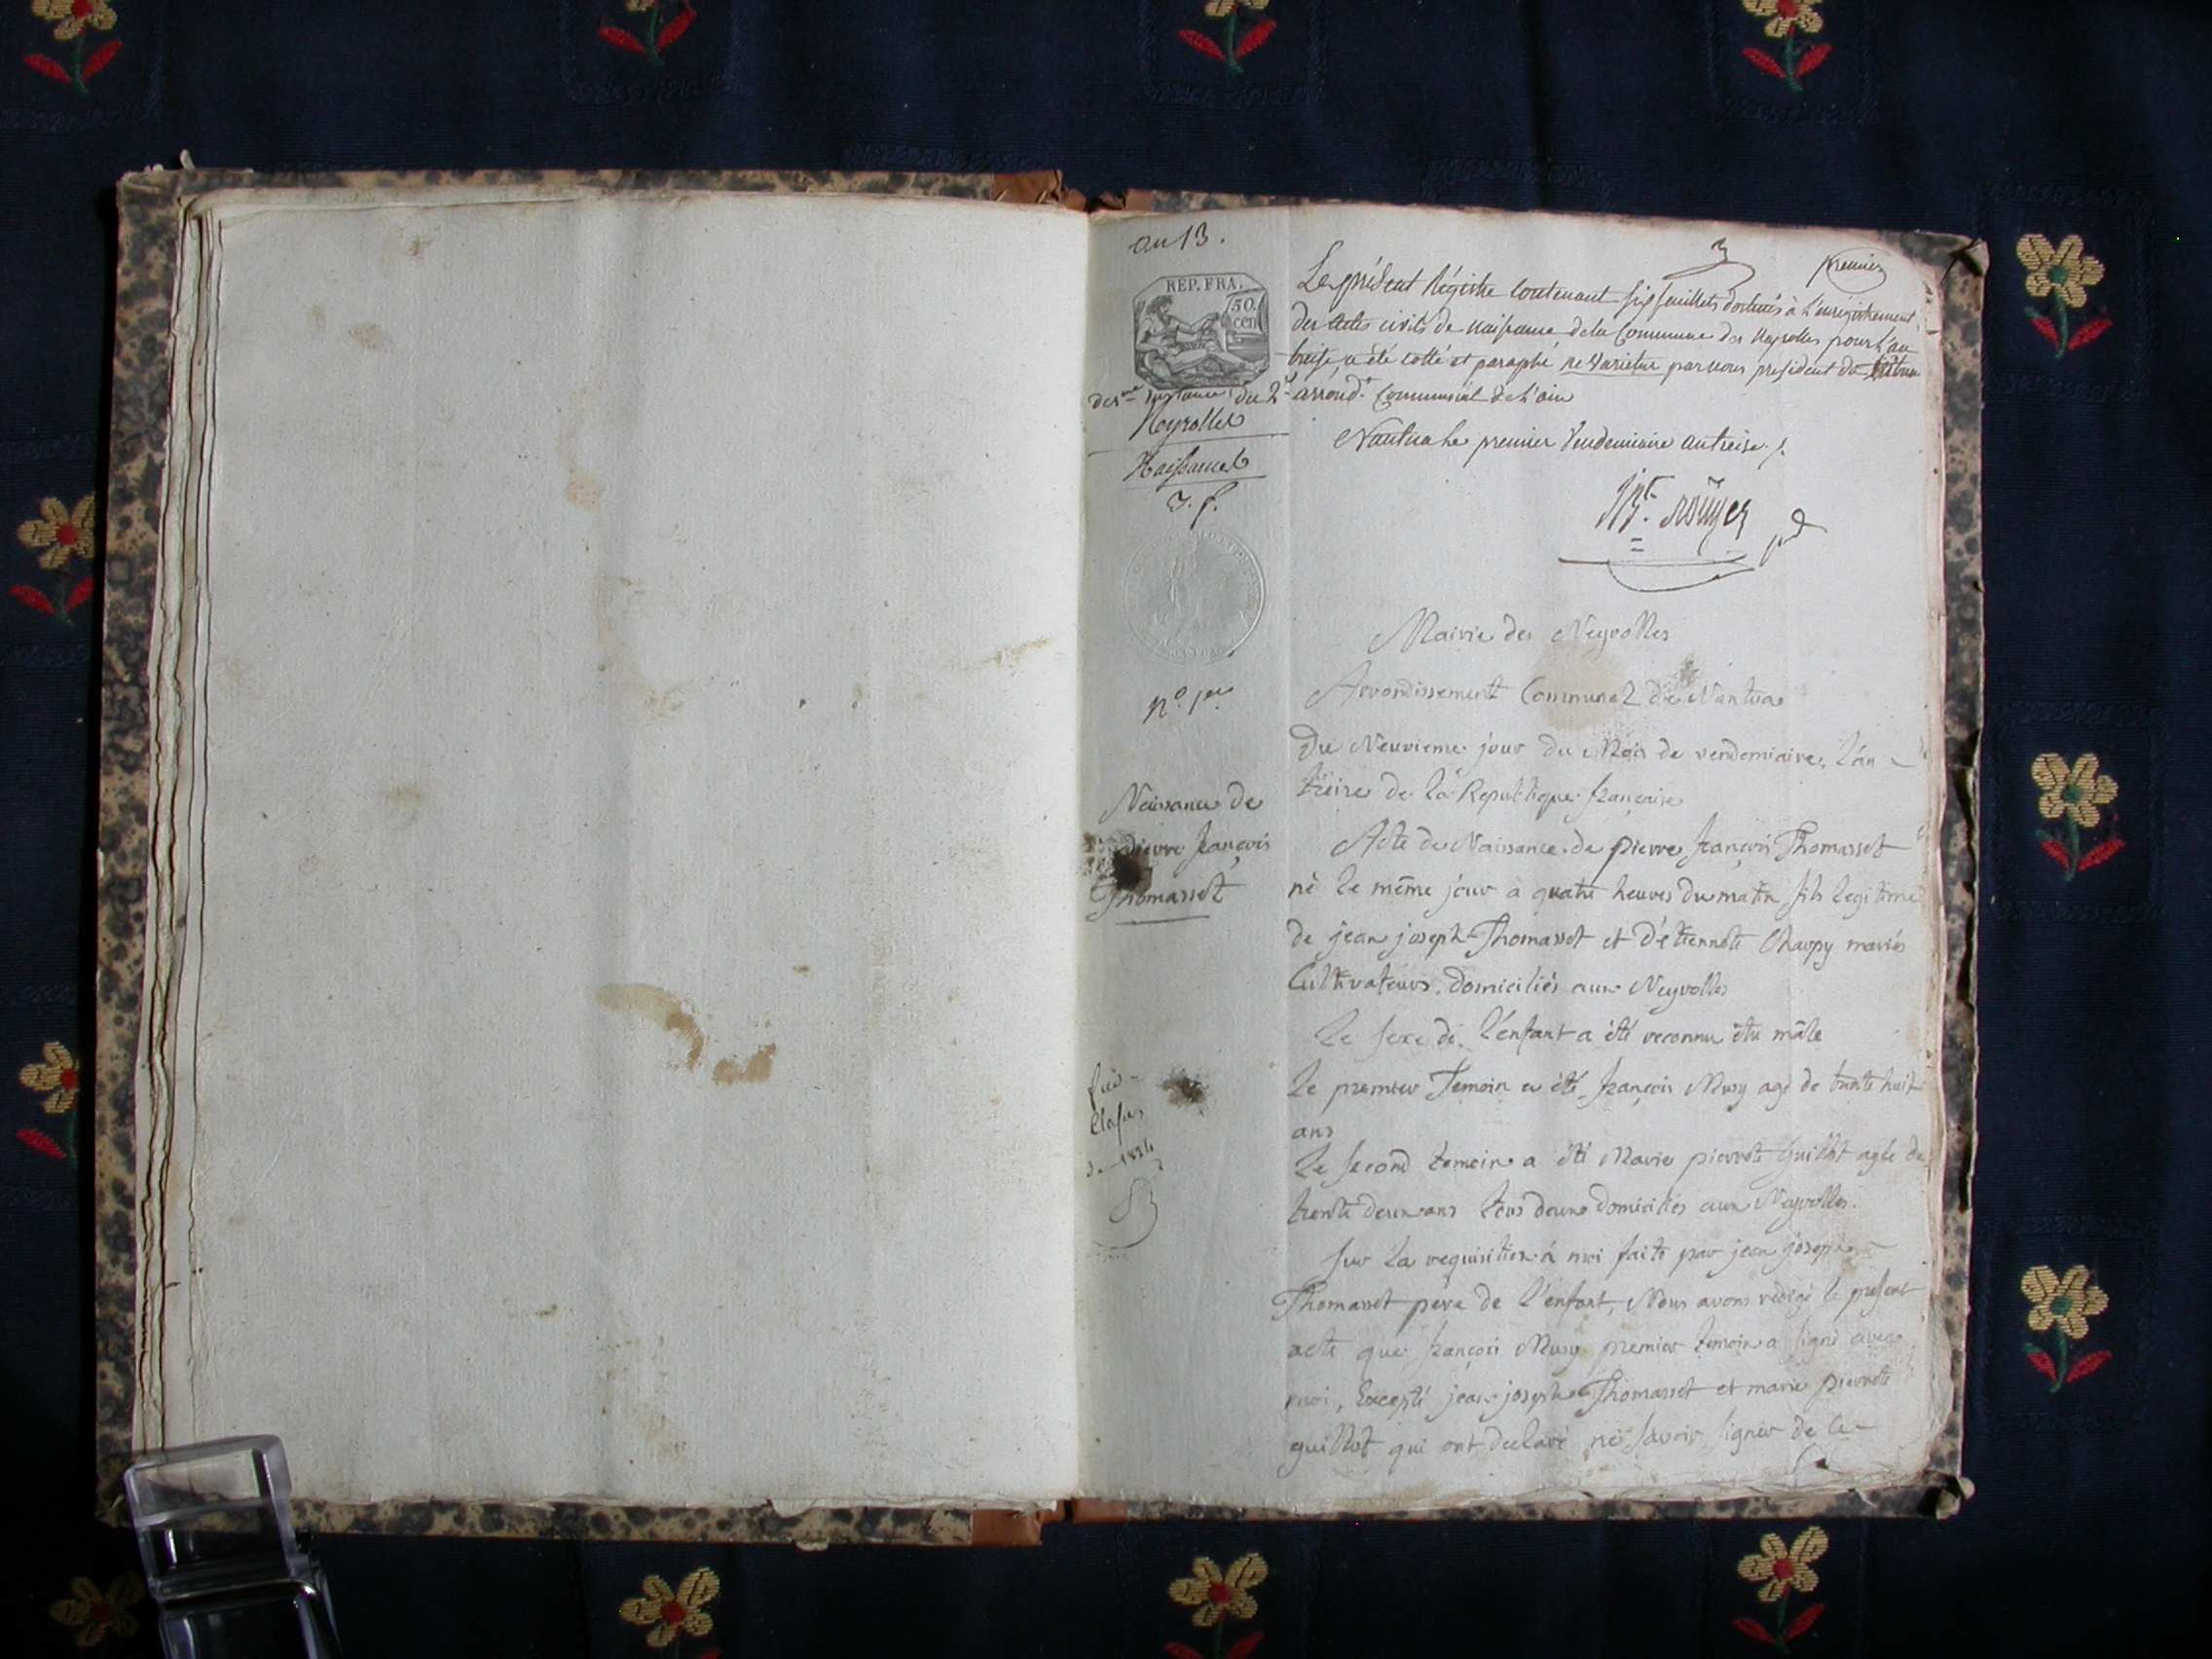 an 13.
REP. FRA.
50.
cen
premier
Le présent Régistre contenant six feuillets destinés à l'enregistrement
des actes civils de naissance de la Commune des Neyrolles pour l'an
treise, a été cotté et paraphé ne varietur par nous president du tribun
de 1re instance du 2e arrond.t Communal de L'ain
Nantua le premier Vendemiaire an treise.
Neyrolles
Naissances
Mairie des Neyrolles
Arrondissement Communal de Nantua
n.o 1er
Du Neuvieme jour du Mois de vendemiaire, L'an
treize de la Republique française
Naissance de
pierre françois
Thomasset
Acte de Naissance de pierre françois Thomasset
né le même jour a quatre heures du matin fils legitime
de jean joseph Thomasset et d'étiennete Charpy mariés
Cultivateurs, domiciliés aux Neyrolles
Le sexe de l'enfant a été reconnu être mâle
Le premier Temoin a été françois Musy agé de trente huit
ans
Le second temoin a été Marie pierrete Guillot agée de
trente deux ans tous deux domiciliés aux Neyrolles.
Sur la requisition à moi faite par jean joseph
Thomasset pere de l'enfant, Nous avons redigé le present
acte que françois Musy premier temoin a signé avec
moi, Excepté jean joseph Thomasset et marie pierrete
guillot qui ont declaré ne savoir signer de ce